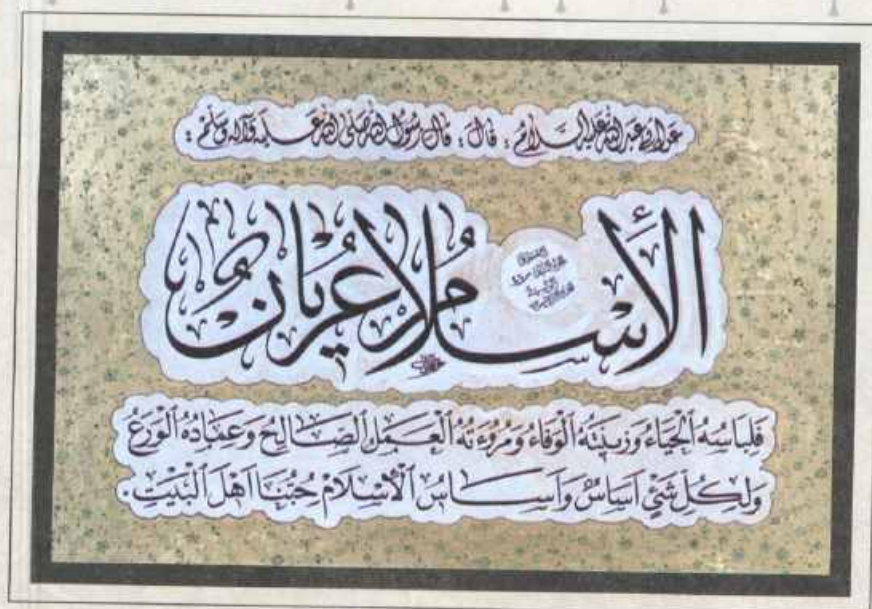 عن ابي عبد الله عليه السلام ؛ قال ؛ قال رسول الله صلى الله عليه وآله وسلم ؛
الأسلام عريان
فَلِبَاسُهُ الْحَيَاءُ وَزِينَتُهُ الْوَفَاءُ وَمُرُوءَتُهُ الْعَمَلُ الصَّالِحُ وَعِمَادُهُ الْوَرَعُ
وَلِكُلِّ شَيْءٍ اَسَاسٌ وَاَسَاسُ الْاُسْلَامِ حُبُّنَا اَهْلَ الْبَيْتِ.